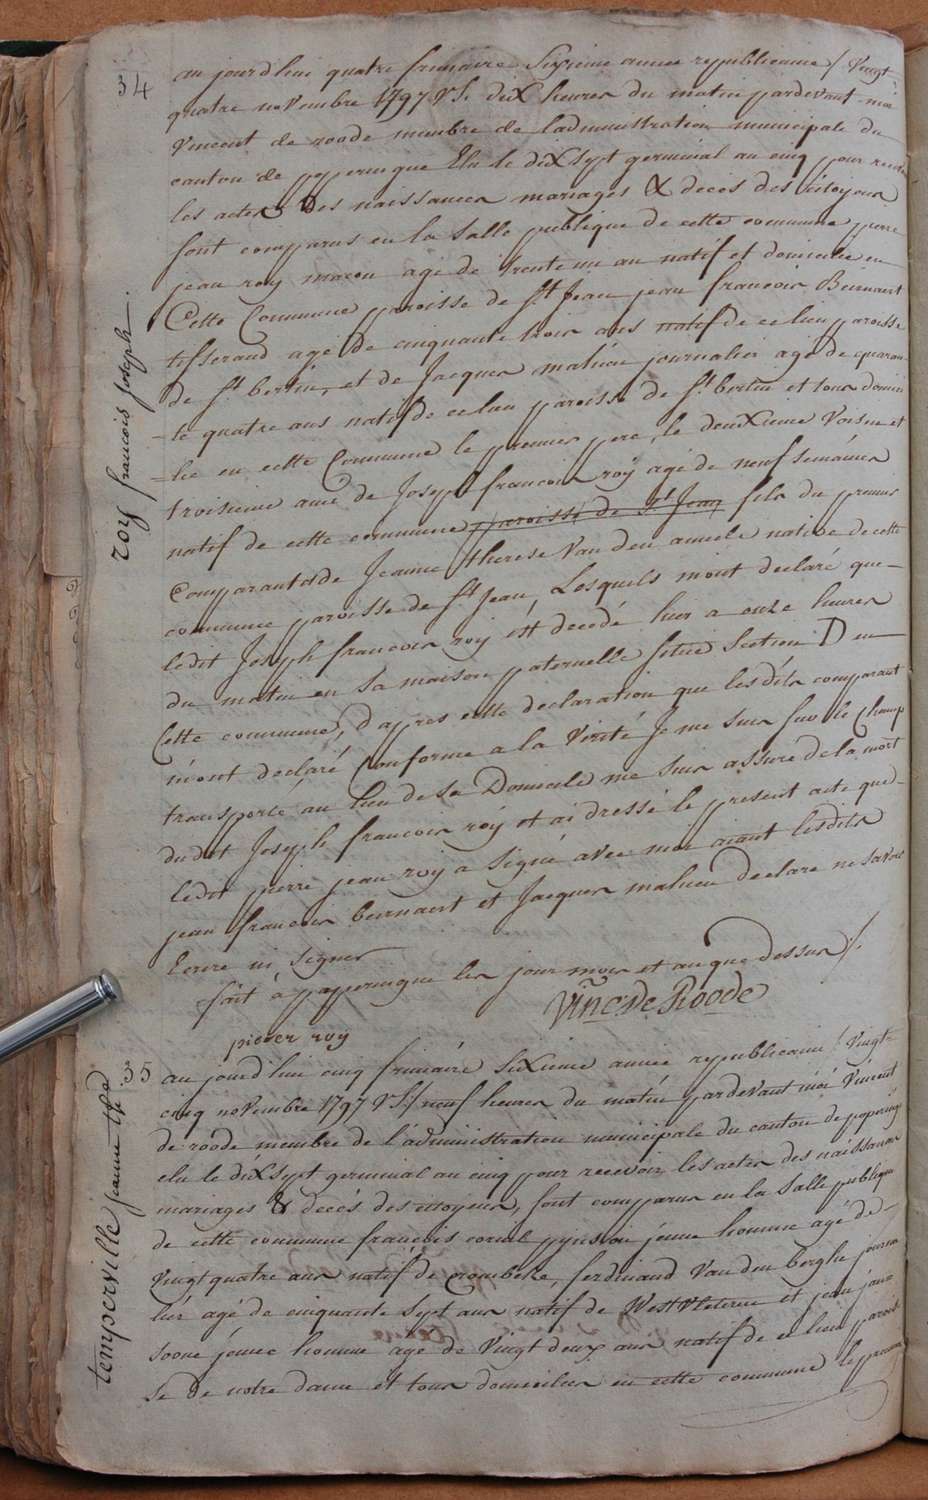 34
au jourd'hui quatre frimaire Sixieme année republicaine / Vingt-
quatre novembre 1797 VS. dix heures du matin pardevant moi
Vincent de roode membre de l'administration municipale du
canton de poperingue Elu le dix Sept germinal an cinq pour recevoir
les actes des naissances mariages & décès des citoyens
sont comparus en la Salle publique de cette commune pierre
jean roy macon agé de trente un an natif et domicilié en
Cette Commune paroisse de St Jean jean francois Beirnaert
tisserand agé de cinquante trois ans natif de ce lieu paroisse
de St bertin, et de Jacques mahieu journalier agé de quaran
-te quatre ans natif de ce lieu paroisse de St bertin et tous domici
-lié en cette Commune le premier pere, le deuxieme Voisin et
troisieme ami de Joseph francois roÿ agé de neuf semaines
natif de cette commune paroisse de St Jean fils du premier
Comparant & de Jeanne therese Van den amiele native de cette
commune paroisse de St Jean, Lesquels m'ont declaré que-
ledit Joseph francois roÿ est decedé hier a onze heures
du matin en Sa maison paternelle située Section D en
Cette commune, d'apres cette declaration que lesdits comparant
m'ont declaré Conforme a la Verité Je me Suis Sur le Champ
transporté au lieu de Se Domicile me Suis assuré de la mort
dudit Joseph francois roÿ et ai dressé le present acte que-
ledit pierre jean roy a Signé avec moi aiant lesdits
jean francois beirnaert et Jacques mahieu declare ne Savoir
Ecrire ni Signer
fait à poperingue les jour mois et an que dessus /.
Vinc De Roode
pieter roy
roy francois joseph.
35
au jourd'hui cinq frimaire Sixieme année republicaine / Vingt-
cinq novembre 1797 VS / neuf heures du matin pardevant moi Vincent
de roode membre de l'administration municipale du canton de poperingue
elu le dix Sept germinal an cinq pour recevoir les actes des naissances
mariages & décès des citoyens, sont comparus en la Salle publique
de cette commune françois cornil jeune homme agé de-
Vingt quatre ans natif de crombeke, ferdinand Van den berghe journa
lier agé de cinquante Sept ans natif de WestVleteren et jean jans
soone jeune homme agé de Vingt deux ans natif de ce lieu parois
se de notre dame et tous domicilies en cette commune le premier
temperville jeanne the